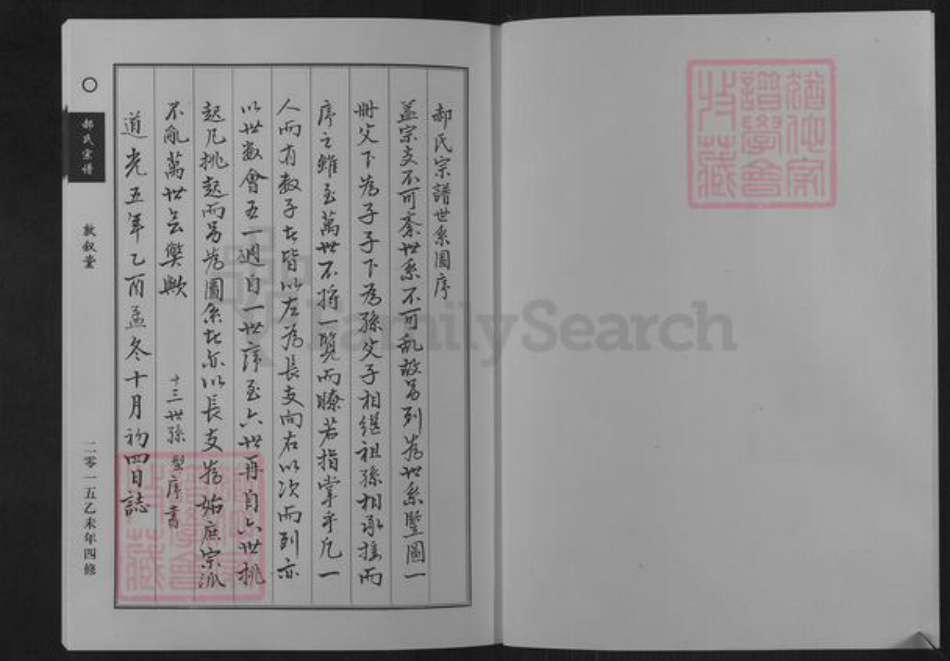 郝氏宗譜世系圖序
盖宗支不可紊世系不可乱故另列為世系豎圖一
冊父下為子子下為孫父子相繼祖孫相承按而
序之雖至萬世不將一覽而瞭若指掌乎凡一
人而有数子者皆以左為長支向右以次而列亦
以世数會五一週自一世序至六世再自六世挑
起凡挑起而另為圖系者亦以長支為始庶宗派
不亂萬世無獘歟
十三世孫 序書
道光五年乙酉孟冬十月初四日誌
郝氏宗譜
敦叙堂
二零一五乙未年四修
FamilySearch